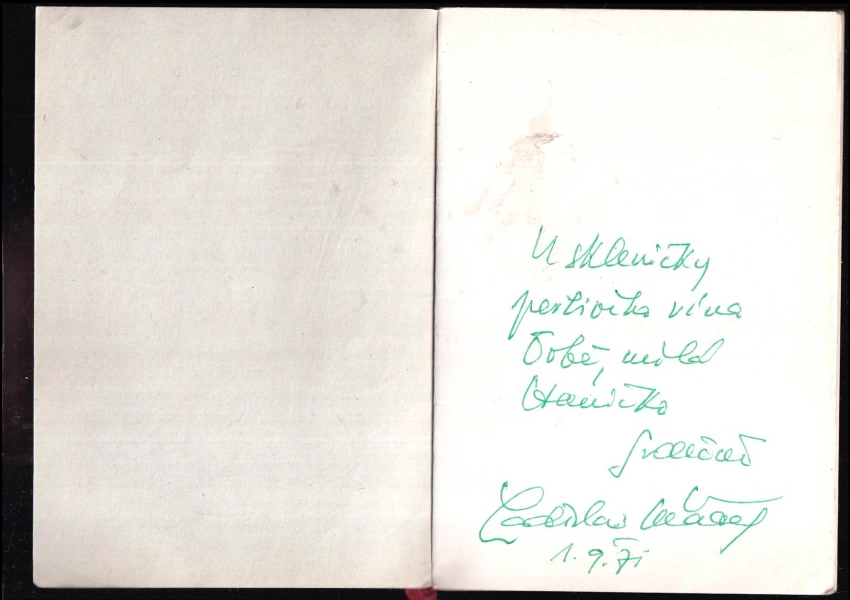 U skleničky
perlivého vína
Tobě, milá
Haničko
srdečně
Ladislav
1. 9. 71